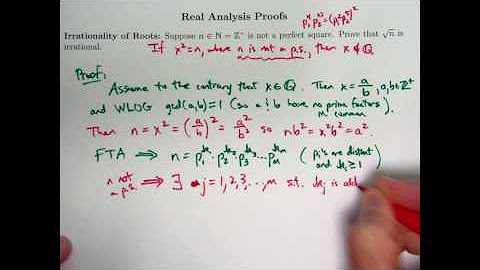 Real Analysis Proofs
p₁²p₂⁴ = (p₁¹p₂²)²
Irrationality of Roots: Suppose n ∈ ℕ = ℤ⁺ is not a perfect square. Prove that √n is
irrational.
If x² = n, where n is not a p.s., then x ∉ ℚ
Proof:
Assume to the contrary that x ∈ ℚ. Then x = a/b, a,b ∈ ℤ⁺
and WLOG gcd(a,b)=1 (so a & b have no prime factors
in common).
Then n = x² = (a/b)² = a²/b² so nb² = x²b² = a².
FTA ⟹ n = p₁^k₁ p₂^k₂ p₃^k₃ ... pₘ^kₘ (pᵢ's are distinct
and kᵢ ≥ 1)
n not a p.s. ⟹ ∃ j = 1, 2, 3, ..., m s.t. kⱼ is odd